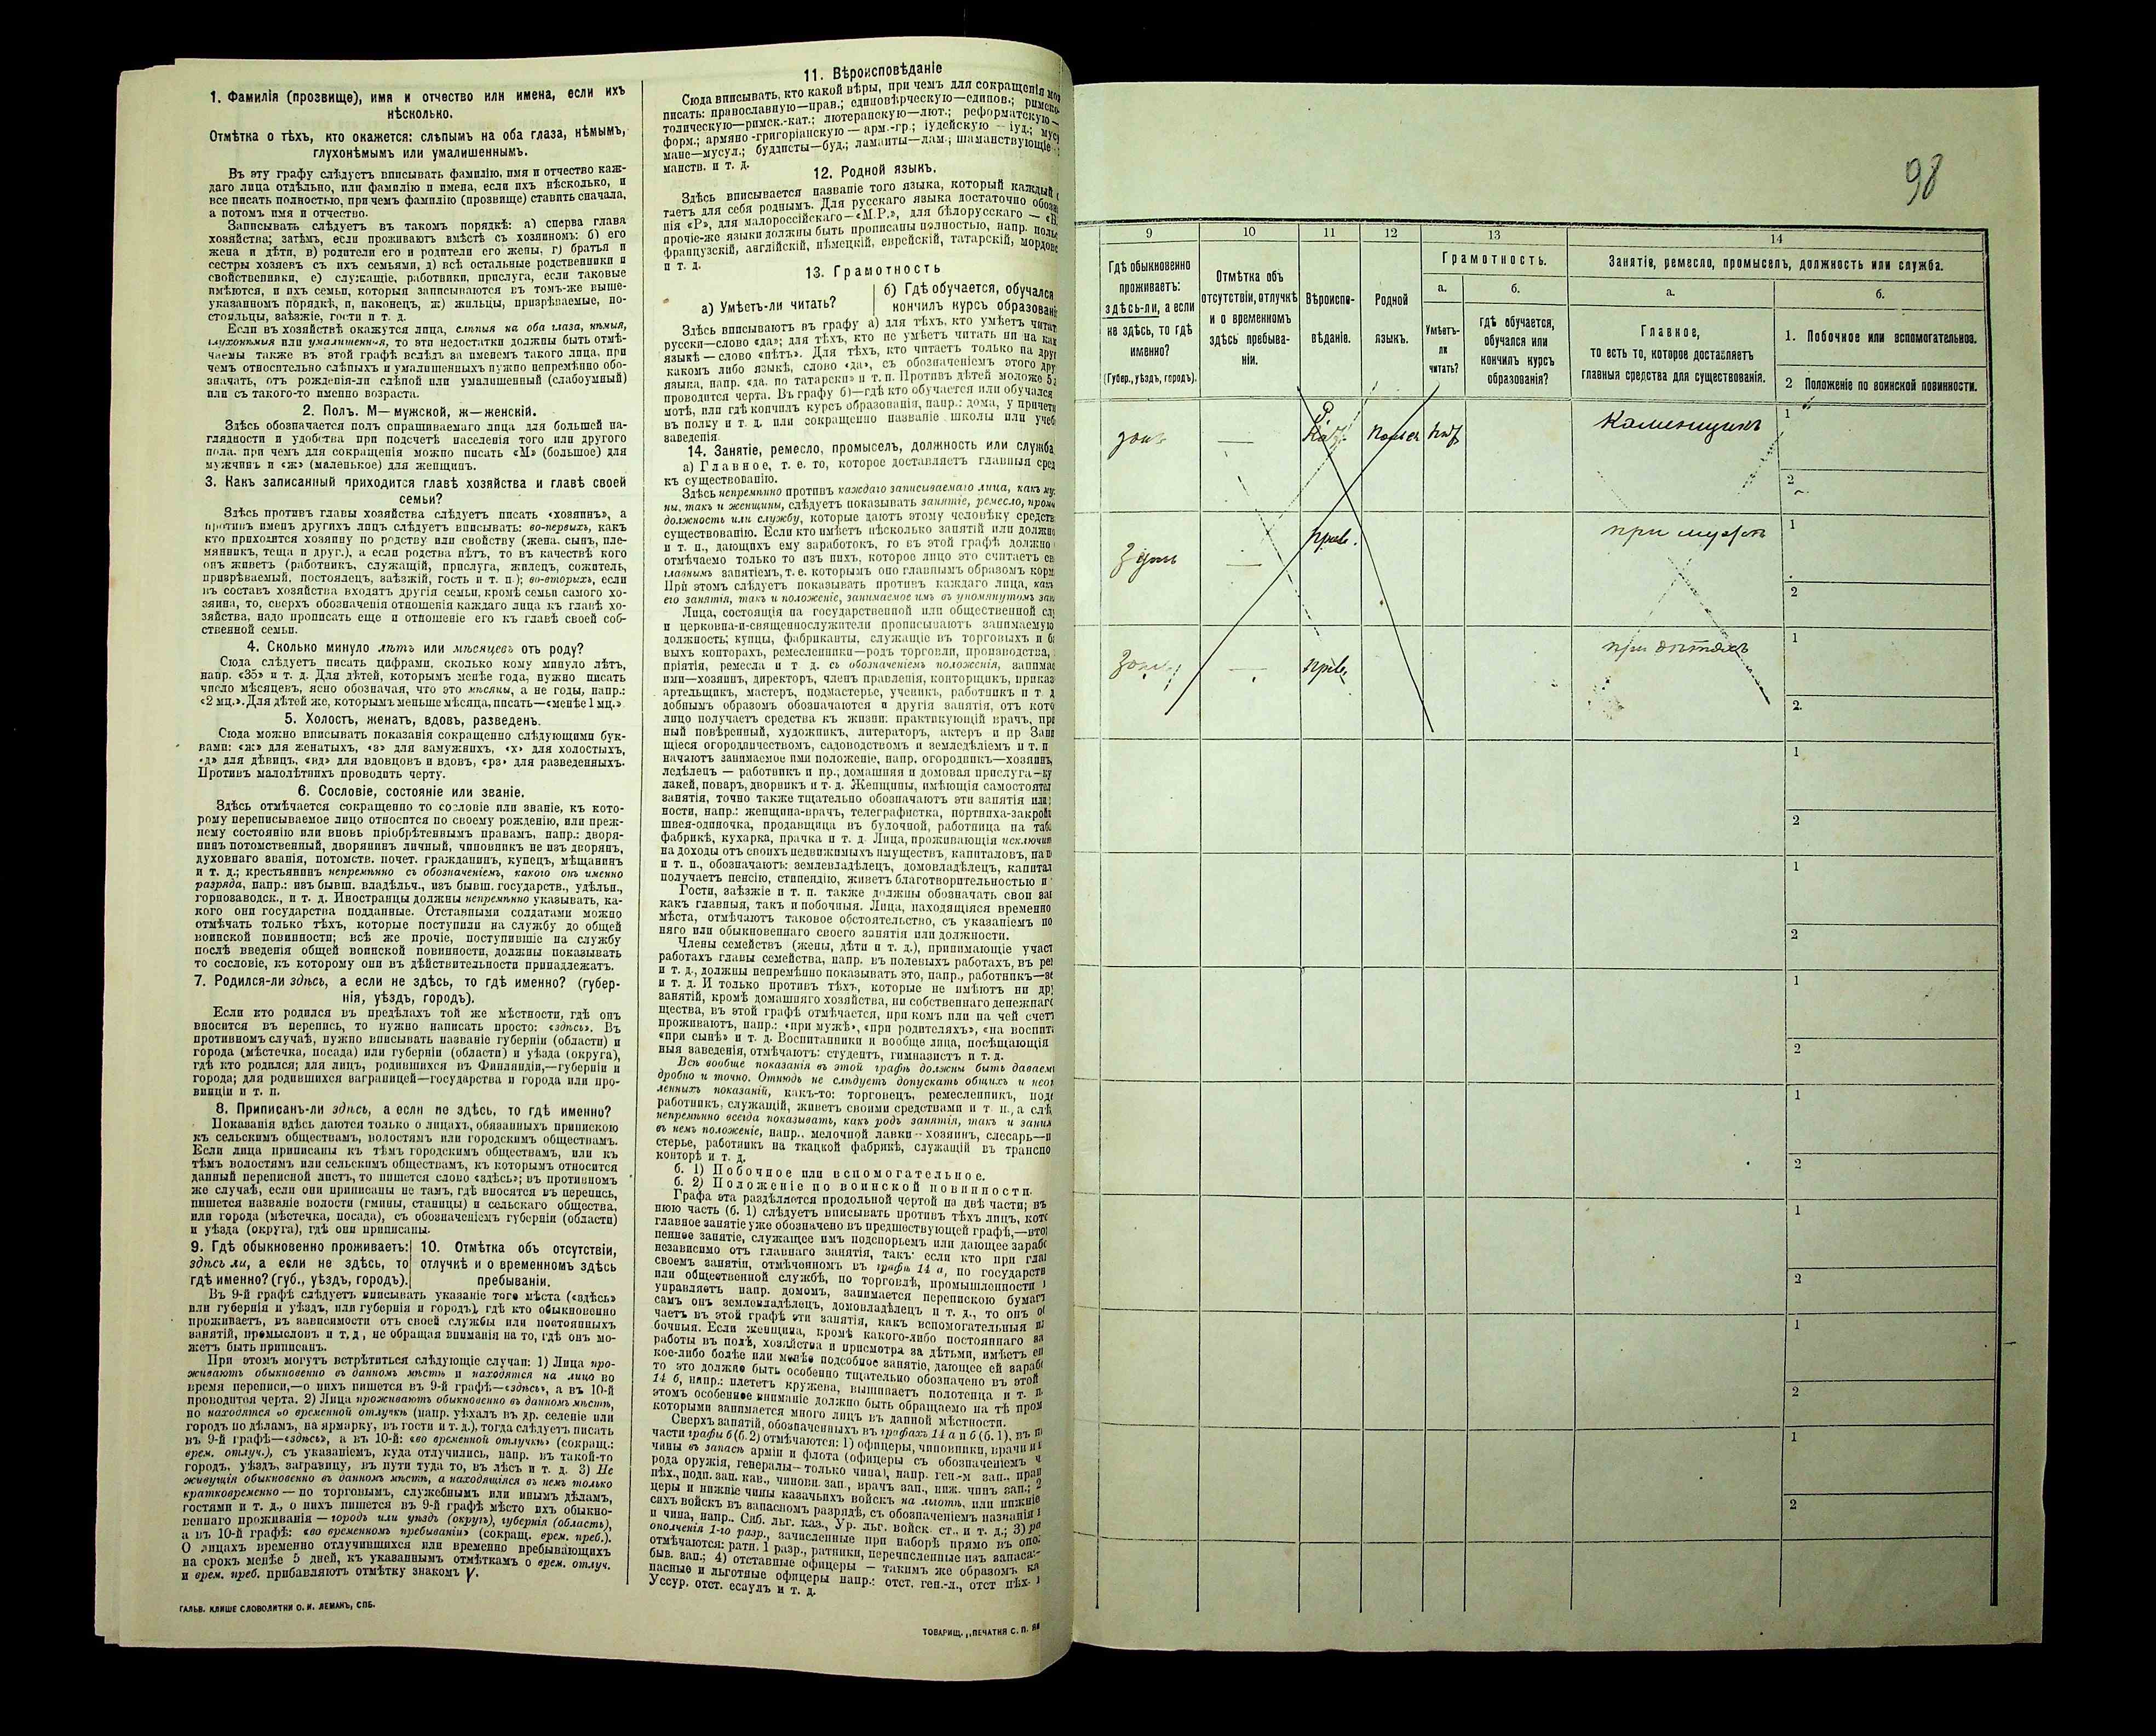 1. Фамилія (прозвище), имя и отчество или имена, если ихъ
нѣсколько.
Отмѣтка о тѣхъ, кто окажется: слѣпымъ на оба глаза, нѣмымъ,
глухонѣмымъ или умалишеннымъ.
Въ эту графу слѣдуетъ вписывать фамилію, имя и отчество каж-
даго лица отдѣльно, или фамилію и имена, если ихъ нѣсколько, и
все писать полностью, при чемъ фамилію (прозвище) ставить сначала,
а потомъ имя и отчество.
Записывать слѣдуетъ въ такомъ порядкѣ: а) сперва глава
хозяйства; затѣмъ, если проживаютъ вмѣстѣ съ хозяиномъ: б) его
жена и дѣти, в) родители его и родители его жены, г) братья и
сестры хозяевъ съ ихъ семьями, д) всѣ остальные родственники и
свойственники, е) служащіе, работники, прислуга, если таковые
имѣются, и ихъ семьи, которыя записываются въ томъ-же выше-
указанномъ порядкѣ, и, наконецъ, ж) жильцы, призрѣваемые, по-
стояльцы, заѣзжіе, гости и т. п.
Если въ хозяйствѣ окажутся лица, слѣпыя на оба глаза, нѣмыя,
глухонѣмыя или умалишенныя, то эти недостатки должны быть отмѣ-
чаемы также въ этой графѣ вслѣдъ за именемъ такого лица, при
чемъ относительно слѣпыхъ и умалишенныхъ нужно непремѣнно обо-
значать, отъ рожденія-ли слѣпой или умалишенный (слабоумный)
или съ такого-то именно возраста.
2. Полъ. М—мужской, ж—женскій.
Здѣсь обозначается полъ спрашиваемаго лица для большей на-
глядности и удобства при подсчетѣ населенія того или другого
пола. при чемъ для сокращенія можно писать «М» (большое) для
мужчинъ и «ж» (маленькое) для женщинъ.
3. Какъ записанный приходится главѣ хозяйства и главѣ своей
семьи?
Здѣсь противъ главы хозяйства слѣдуетъ писать «хозяинъ», а
противъ именъ другихъ лицъ слѣдуетъ вписывать: во-первыхъ, какъ
кто приходится хозяину по родству или свойству (жена, сынъ, пле-
мянникъ, теща и друг.), а если родства нѣтъ, то въ качествѣ кого
онъ живетъ (работникъ, служащій, прислуга, жилецъ, сожитель,
призрѣваемый, постоялецъ, заѣзжій, гость и т. п.); во-вторыхъ, если
въ составъ хозяйства входятъ другія семьи, кромѣ семьи самого хо-
зяина, то, сверхъ обозначенія отношенія каждаго лица къ главѣ хо-
зяйства, надо прописать еще и отношеніе его къ главѣ своей соб-
ственной семьи.
4. Сколько минуло лѣтъ или мѣсяцевъ отъ роду?
Сюда слѣдуетъ писать цифрами, сколько кому минуло лѣтъ,
напр. «35» и т. д. Для дѣтей, которымъ менѣе года, нужно писать
число мѣсяцевъ, ясно обозначая, что это мѣсяцы, а не годы, напр.:
«2 мц.». Для дѣтей же, которымъ меньше мѣсяца, писать—«менѣе 1 мц.»
5. Холостъ, женатъ, вдовъ, разведенъ.
Сюда можно вписывать показанія сокращенно слѣдующими бук-
вами: «ж» для женатыхъ, «з» для замужнихъ, «х» для холостыхъ,
«д» для дѣвицъ, «вд» для вдовцовъ и вдовъ, «рз» для разведенныхъ.
Противъ малолѣтнихъ проводить черту.
6. Сословіе, состояніе или званіе.
Здѣсь отмѣчается сокращенно то сословіе или званіе, къ кото-
рому переписываемое лицо относится по своему рожденію, или преж-
нему состоянію или вновь пріобрѣтеннымъ правамъ, напр.: дворя-
нинъ потомственный, дворянинъ личный, чиновникъ не изъ дворянъ,
духовнаго званія, потомств. почет. гражданинъ, купецъ, мѣщанинъ
и т. д.; крестьянинъ непремѣнно съ обозначеніемъ, какого онъ именно
разряда, напр.: изъ бывш. владѣльч., изъ бывш. государств., удѣльн.,
горнозаводск., и т. д. Иностранцы должны непремѣнно указывать, ка-
кого они государства подданные. Отставными солдатами можно
отмѣчать только тѣхъ, которые поступили на службу до общей
воинской повинности; всѣ же прочіе, поступившіе на службу
послѣ введенія общей воинской повинности, должны показывать
то сословіе, къ которому они въ дѣйствительности принадлежатъ.
7. Родился-ли здѣсь, а если не здѣсь, то гдѣ именно? (губер-
нія, уѣздъ, городъ).
Если кто родился въ предѣлахъ той же мѣстности, гдѣ онъ
вносится въ перепись, то нужно написать просто: «здѣсь». Въ
противномъ случаѣ, нужно вписывать названіе губерніи (области) и
города (мѣстечка, посада) или губерніи (области) и уѣзда (округа),
гдѣ кто родился; для лицъ, родившихся въ Финляндіи,—губерніи и
города; для родившихся заграницей—государства и города или про-
винціи и т. п.
8. Приписанъ-ли здѣсь, а если не здѣсь, то гдѣ именно?
Показанія здѣсь даются только о лицахъ, обязанныхъ припискою
къ сельскимъ обществамъ, волостямъ или городскимъ обществамъ.
Если лица приписаны къ тѣмъ городскимъ обществамъ, или къ
тѣмъ волостямъ или сельскимъ обществамъ, къ которымъ относится
данный переписной листъ, то пишется слово «здѣсь»; въ противномъ
же случаѣ, если они приписаны не тамъ, гдѣ вносятся въ перепись,
пишется названіе волости (гмины, станицы) и сельскаго общества,
или города (мѣстечка, посада), съ обозначеніемъ губерніи (области)
и уѣзда (округа), гдѣ они приписаны.
9. Гдѣ обыкновенно проживаетъ:
здѣсь ли, а если не здѣсь, то
гдѣ именно? (губ., уѣздъ, городъ).
10. Отмѣтка объ отсутствіи,
отлучкѣ и о временномъ здѣсь
пребываніи.
Въ 9-й графѣ слѣдуетъ вписывать указаніе того мѣста («здѣсь»
или губернія и уѣздъ, или губернія и городъ), гдѣ кто обыкновенно
проживаетъ, въ зависимости отъ своей службы или постоянныхъ
занятій, промысловъ и т. д, не обращая вниманія на то, гдѣ онъ мо-
жетъ быть приписанъ.
При этомъ могутъ встрѣтиться слѣдующіе случаи: 1) Лица про-
живаютъ обыкновенно въ данномъ мѣстѣ и находятся на лицо во
время переписи,—о нихъ пишется въ 9-й графѣ—«здѣсь», а въ 10-й
проводится черта. 2) Лица проживаютъ обыкновенно въ данномъ мѣстѣ,
но находятся во временной отлучкѣ (напр. уѣхалъ въ др. селеніе или
городъ по дѣламъ, на ярмарку, въ гости и т. д.), тогда слѣдуетъ писать
въ 9-й графѣ—«здѣсь», а въ 10-й: «во временной отлучкѣ» (сокращ.:
врем. отлуч.), съ указаніемъ, куда отлучились, напр. въ такой-то
городъ, уѣздъ, заграницу, въ пути туда то, въ лѣсъ и т. д. 3) Не
живущія обыкновенно въ данномъ мѣстѣ, а находящіяся въ немъ только
кратковременно — по торговымъ, служебнымъ или инымъ дѣламъ,
гостями и т. д., о нихъ пишется въ 9-й графѣ мѣсто ихъ обыкно-
веннаго проживанія — городъ или уѣздъ (округъ), губернія (область),
а въ 10-й графѣ: «во временномъ пребываніи» (сокращ. врем. преб.).
О лицахъ временно отлучившихся или временно пребывающихъ
на срокъ менѣе 5 дней, къ указаннымъ отмѣткамъ о врем. отлуч.
и врем. преб. прибавляютъ отмѣтку знакомъ V.
ГАЛЬВ. КЛИШЕ СЛОВОЛИТНИ О. И. ЛЕМАНЪ, СПБ.
11. Вѣроисповѣданіе
Сюда вписывать, кто какой вѣры, при чемъ для сокращенія
писать: православную—прав.; единовѣрческую—единов.; римско-
толическую—римск.-кат.; лютеранскую—лют.; реформатскую—
форм.; армяно-григоріанскую — арм.-гр.; іудейскую — іуд.;
мане—мусул.; буддисты—буд.; ламаиты—лам.; шаманствующіе
манств. и т. д.
12. Родной языкъ.
Здѣсь вписывается названіе того языка, который каждый
таетъ для себя роднымъ. Для русскаго языка достаточно
нія «Р», для малороссійскаго—«М.Р.», для бѣлорусскаго —
прочіе-же языки должны быть прописаны полностью, напр.
французскій, англійскій, нѣмецкій, еврейскій, татарскій,
и т. д.
13. Грамотность
а) Умѣетъ-ли читать?
б) Гдѣ обучается, обучался
кончилъ курсъ
Здѣсь вписываютъ въ графу а) для тѣхъ, кто умѣетъ
русски—слово «да»; для тѣхъ, кто не умѣетъ читать ни на
языкѣ — слово «нѣтъ». Для тѣхъ, кто читаетъ только на
какомъ либо языкѣ, слово «да», съ обозначеніемъ этого
языка, напр. «да. по татарски» и т. п. Противъ дѣтей моложе 5
проводится черта. Въ графу б)—гдѣ кто обучается или обучался
мотѣ, или гдѣ кончилъ курсъ образованія, напр.: дома, у
въ полку и т. д. или сокращенно названіе школы или
заведенія
14. Занятіе, ремесло, промыселъ, должность или служба
а) Главное, т. е. то, которое доставляетъ главныя
къ существованію.
Здѣсь непремѣнно противъ каждаго записываемаго лица, какъ
ны, такъ и женщины, слѣдуетъ показывать занятіе, ремесло,
должность или службу, которые даютъ этому человѣку
существованію. Если кто имѣетъ нѣсколько занятій или
и т. п., дающихъ ему заработокъ, то въ этой графѣ должно
отмѣчаемо только то изъ нихъ, которое лицо это считаетъ
главнымъ занятіемъ, т. е. которымъ оно главнымъ образомъ
При этомъ слѣдуетъ показывать противъ каждаго лица, какъ
его занятія, такъ и положеніе, занимаемое имъ въ упомянутомъ
Лица, состоящія на государственной или общественной
и церковна-и-священнослужители прописываютъ занимаемую
должность; купцы, фабриканты, служащіе въ торговыхъ и
выхъ конторахъ, ремесленники—родъ торговли, производства,
пріятія, ремесла и т. д. съ обозначеніемъ положенія,
ими—хозяинъ, директоръ, членъ правленія, конторщикъ,
артельщикъ, мастеръ, подмастерье, ученикъ, работникъ и т. д
добнымъ образомъ обозначаются и другія занятія, отъ
лицо получаетъ средства къ жизни: практикующій врачъ,
ный повѣренный, художникъ, литераторъ, актеръ и пр
щіеся огородничествомъ, садоводствомъ и земледѣліемъ и т. п
начаютъ занимаемое ими положеніе, напр. огородникъ—хозяинъ,
ледѣлецъ — работникъ и пр.; домашняя и домовая прислуга—
лакей, поваръ, дворникъ и т. д. Женщины, имѣющія
занятія, точно также тщательно обозначаютъ эти занятія
ности, напр.: женщина-врачъ, телеграфистка, портниха-
швея-одиночка, продавщица въ булочной, работница на
фабрикѣ, кухарка, прачка и т. д. Лица, проживающія
на доходы отъ своихъ недвижимыхъ имуществъ, капиталовъ,
и т. п., обозначаютъ: землевладѣлецъ, домовладѣлецъ,
получаетъ пенсію, стипендію, живетъ благотворительностью и
Гости, заѣзжіе и т. п. также должны обозначать свои
какъ главныя, такъ и побочныя. Лица, находящіяся временно
мѣста, отмѣчаютъ таковое обстоятельство, съ указаніемъ
няго или обыкновеннаго своего занятія или должности.
Члены семействъ (жены, дѣти и т. д.), принимающіе
работахъ главы семейства, напр. въ полевыхъ работахъ, въ
и т. д., должны непремѣнно показывать это, напр., работникъ—
и т. д. И только противъ тѣхъ, которые не имѣютъ ни
занятій, кромѣ домашняго хозяйства, ни собственнаго
щества, въ этой графѣ отмѣчается, при комъ или на чей
проживаютъ, напр.: «при мужѣ», «при родителяхъ», «на
«при сынѣ» и т. д. Воспитанники и вообще лица, посѣщающія
ныя заведенія, отмѣчаютъ: студентъ, гимназистъ и т. д.
Всѣ вообще показанія въ этой графѣ должны быть
дробно и точно. Отнюдь не слѣдуетъ допускать общихъ и
ленныхъ показаній, какъ-то: торговецъ, ремесленникъ,
работникъ, служащій, живетъ своими средствами и т. п., а
непремѣнно всегда показывать, какъ родъ занятія, такъ и
въ немъ положеніе, напр., мелочной лавки—хозяинъ, слесарь—
стерье, работникъ на ткацкой фабрикѣ, служащій въ
конторѣ и т. д.
б. 1) Побочное или вспомогательное.
б. 2) Положеніе по воинской повинности.
Графа эта раздѣляется продольной чертой на двѣ части; въ
нюю часть (б. 1) слѣдуетъ вписывать противъ тѣхъ лицъ,
главное занятіе уже обозначено въ предшествующей графѣ,—
пенное занятіе, служащее имъ подспорьемъ или дающее
независимо отъ главнаго занятія, такъ: если кто при
своемъ занятіи, отмѣченномъ въ графѣ 14 а, по
или общественной службѣ, по торговлѣ, промышленности
управляетъ напр. домомъ, занимается перепискою
самъ онъ землевладѣлецъ, домовладѣлецъ и т. д., то онъ
чаетъ въ этой графѣ эти занятія, какъ вспомогательныя
бочныя. Если женщина, кромѣ какого-либо постояннаго
работы въ полѣ, хозяйства и присмотра за дѣтьми, имѣетъ
кое-либо болѣе или менѣе подсобное занятіе, дающее ей
то это должно быть особенно тщательно обозначено въ этой
14 б, напр.: плететъ кружева, вышиваетъ полотенца и т. п.
этомъ особенное вниманіе должно быть обращаемо на тѣ
которыми занимается много лицъ въ данной мѣстности.
Сверхъ занятій, обозначенныхъ въ графахъ 14 а и б (б. 1), въ
части графы б (б. 2) отмѣчаются: 1) офицеры, чиновники, врачи и
чины въ запасѣ арміи и флота (офицеры съ обозначеніемъ
рода оружія, генералы—только чина), напр. ген.-м зап.,
пѣх., подп. зап. кав., чиновн. зап., врачъ зап., ниж. чинъ зап.; 2
церы и нижніе чины казачьихъ войскъ на льготѣ, или нижніе
сихъ войскъ въ запасномъ разрядѣ, съ обозначеніемъ названія
и чина, напр.. Сиб. льг. каз., Ур. льг. войск. ст., и т. д.; 3)
ополченія 1-го разр., зачисленные при наборѣ прямо въ
отмѣчаются: ратн. 1 разр., ратники, перечисленные изъ
быв. зап.; 4) отставные офицеры — такимъ же образомъ,
пасные и льготные офицеры напр.: отст. ген.-л., отст пѣх.
Уссур. отст. есаулъ и т. д.
ТОВАРИЩ. „ПЕЧАТНЯ С. П.
98
9 10 11 12 13 14
Гдѣ обыкновенно
проживаетъ:
здѣсь-ли, а если
не здѣсь, то гдѣ
именно?
(Губер., уѣздъ, городъ).
Отмѣтка объ
отсутствіи, отлучкѣ
и о временномъ
здѣсь пребыва-
ніи.
Вѣроиспо-
вѣданіе.
Родной
языкъ.
Грамотность.
а.
Умѣетъ-
ли
читать?
б.
гдѣ обучается,
обучался или
кончилъ курсъ
образованія?
Занятіе, ремесло, промыселъ, должность или служба.
а.
Главное,
то есть то, которое доставляетъ
главныя средства для существованія.
б.
1. Побочное или вспомогательное.
2 Положеніе по воинской повинности.
Каменщикъ
1
2
прав.
при мужѣ
1
2
прав.
при дѣтяхъ
1
2.
1
2
1
2
1
2
1
2
1
2
1
2
1
2